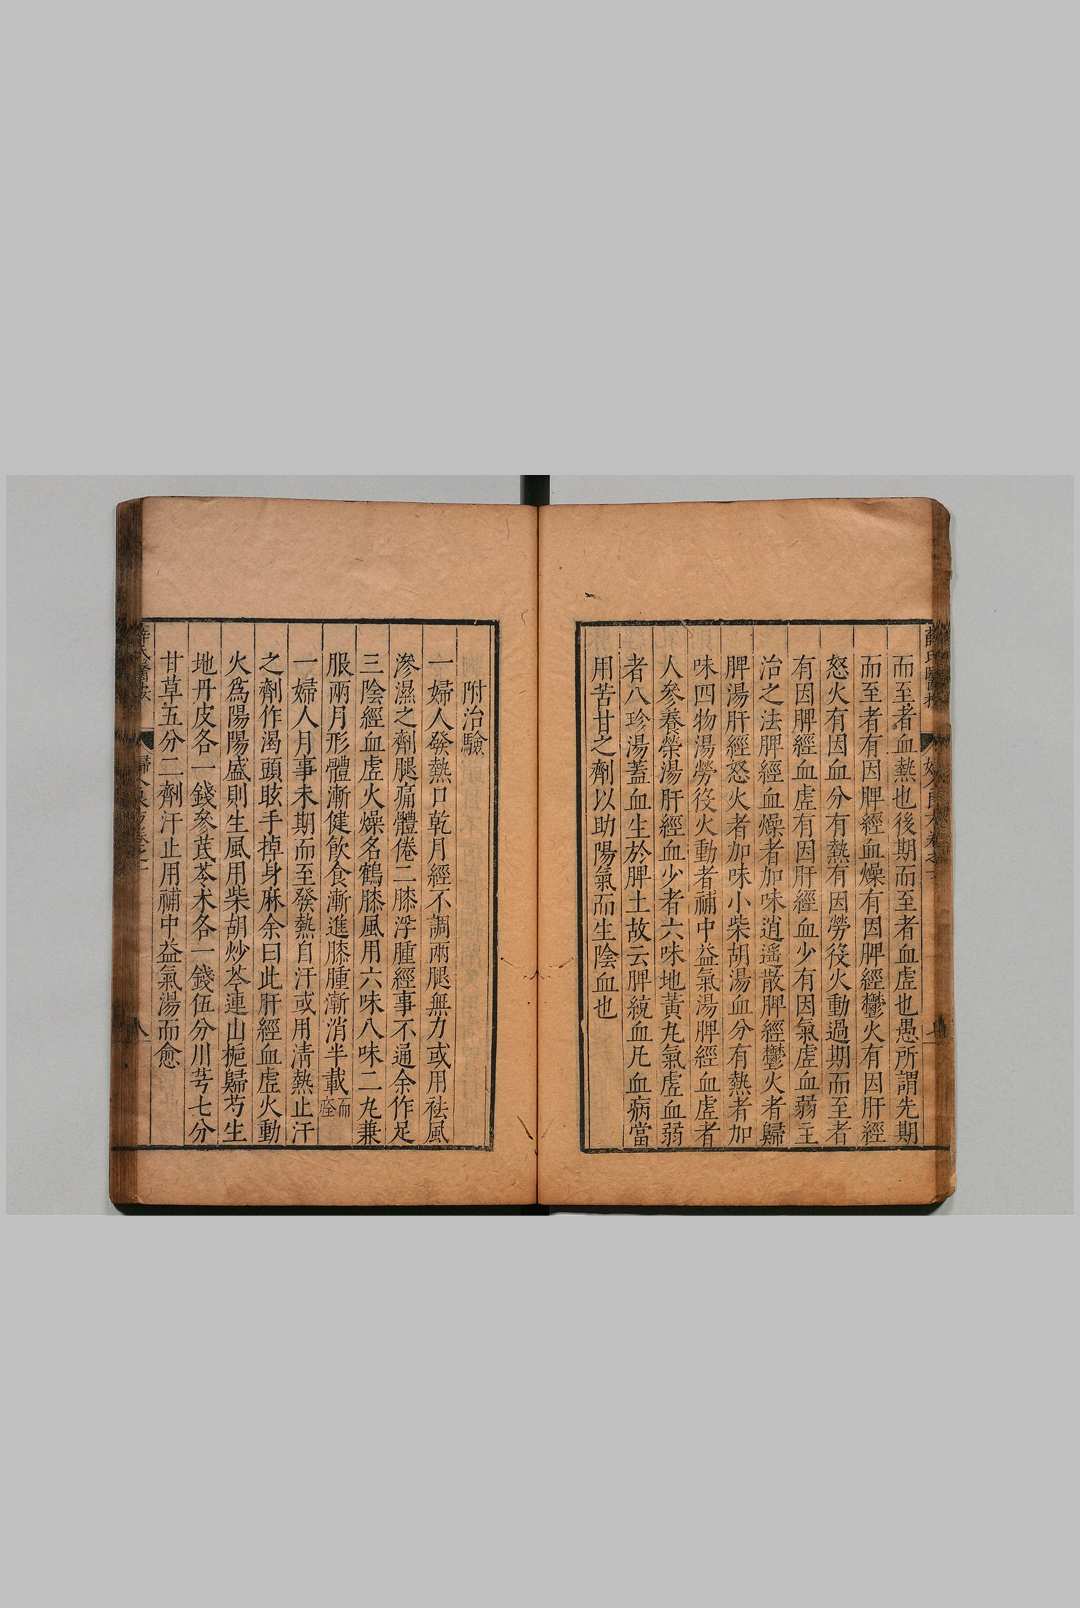 而至者血熱也後期而至者血虛也愚所謂先期
而至者有因脾經血燥有因脾經鬱火有因肝經
怒火有因血分有熱有因勞役火動過期而至者
有因脾經血虛有因肝經血少有因氣虛血弱主
治之法脾經血燥者加味逍遙散脾經鬱火者歸
脾湯肝經怒火者加味小柴胡湯血分有熱者加
味四物湯勞役火動者補中益氣湯脾經血虛者
人參養榮湯肝經血少者六味地黃丸氣虛血弱
者八珍湯蓋血生於脾土故云脾統血凡血病當
用苦甘之劑以助陽氣而生陰血也
附治驗
一婦人發熱口乾月經不調兩腿無力或用祛風
滲濕之劑腿痛體倦二膝浮腫經事不通余作足
三陰經血虛火燥名鶴膝風用六味八味二丸兼
服兩月形體漸健飲食漸進膝腫漸消半載而痊
一婦人月事未期而至發熱自汗或用清熱止汗
之劑作渴頭眩手掉身麻余曰此肝經血虛火動
火為陽陽盛則生風用柴胡炒芩連山梔歸芍生
地丹皮各一錢參芪苓朮各一錢伍分川芎七分
甘草五分二劑汗止用補中益氣湯而愈
八